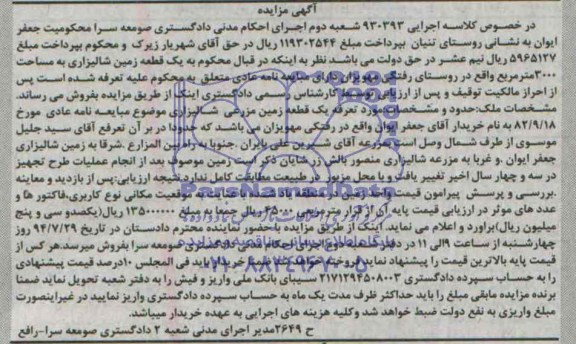 آگهی مزایده
در خصوص کلاسه اجرایی ۹۳۰۳۹۳ شعبه دوم اجرای احکام مدنی دادگستری صومعه سرا محکومیت جعفر
ایوان به نشانی روستای تنیان بپرداخت مبلغ ۱۱۹۳۰۲۵۴۴ ریال در حق آقای شهریار زیرک و محکوم بپرداخت مبلغ
۵۹۶۵۱۲۷ ریال نیم عشر در حق دولت می باشد نظر به اینکه در قبال محکوم به یک قطعه زمین شالیزاری به مساحت
۳۰۰۰مترمربع واقع در روستای رفتگی مهویزان دارای مبایعه نامه عادی متعلق به محکوم علیه تعرفه شده است پس
از احراز مالکیت توقیف و پس از ارزیابی توسط کارشناس رسمی دادگستری اینک از طریق مزایده بفروش می رساند.
مشخصات ملک:حدود و مشخصات مورد تعرفه یک قطعه زمین مزروعی شالیزاری موضوع مبایعه نامه عادی مورخ
۸۲/۹/۱۸ به نام خریدار آقای جعفر ایوان واقع در رفتگی مهویزان می باشد که حدودا در بر آن تعرفع آقای سید جلیل
موسوی از طرف شمال وصل است بمزرعه آقای شیرین علی بایران .جنوبا به راه بین المزارع .شرقا به زمین شالیزاری
جعفر ایوان .و غربا به مزرعه شالیزاری منصور بالش زر شایان ذکر است زمین موصوف بعد از انجام عملیات طرح تجهیز
در سه و چهار سال اخیر تغییر یافت و با محل مزبور در طبیعت مطابقت کامل ندارد.نتیجه ارزیابی:پس از بازدید و معاینه
.بررسی و پرسش پیرامون قیمت واحد زمین در منطقه یاد شده با عنایت به موقعیت مکانی نوع کاربری،فاکتور ها و
عدد های موثر در ارزیابی قیمت پایه آن از قرار متر مربعی ۴۵۰۰۰ ریال جمعا به مبلغ ۱۳۵۰۰۰۰۰۰ ریال(یکصدو سی و پنج
میلیون ریال)براورد و اعلام می نماید. اینک از طریق مزایده باحضور نماینده محترم دادستان در تاریخ ۹۴/۷/۲۹ روز
چهارشنبه از ساعت ۹الی ۱۱ در دفتر شعبه دوم اجرای احکام مدنی دادگستری صومعه سرا بفروش میرسد.هر کس از
قیمت پایه بالاترین قیمت را پیشنهاد نماید فروخته خواهد شد ضمنا خریدار باید فی المجلس ۱۰درصد قیمت پیشنهادی
را به حساب سپرده دادگستری ۲۱۷۱۲۹۴۵۰۸۰۰۳ سیبای بانک ملی واریز و فیش را به دفتر شعبه تحویل نماید ضمنا
برنده مزایده مابقی مبلغ را باید حداکثر ظرف مدت یک ماه به حساب سپرده دادگستری واریز نمایید در غیراینصورت
مبلغ واریزی به نفع دولت ضبط خواهد شد وکلیه هزینه های اجرایی به عهده خریدار میباشد.
ح ۲۶۴۹مدیر اجرای مدنی شعبه ۲ دادگستری صومعه سرا-رافع